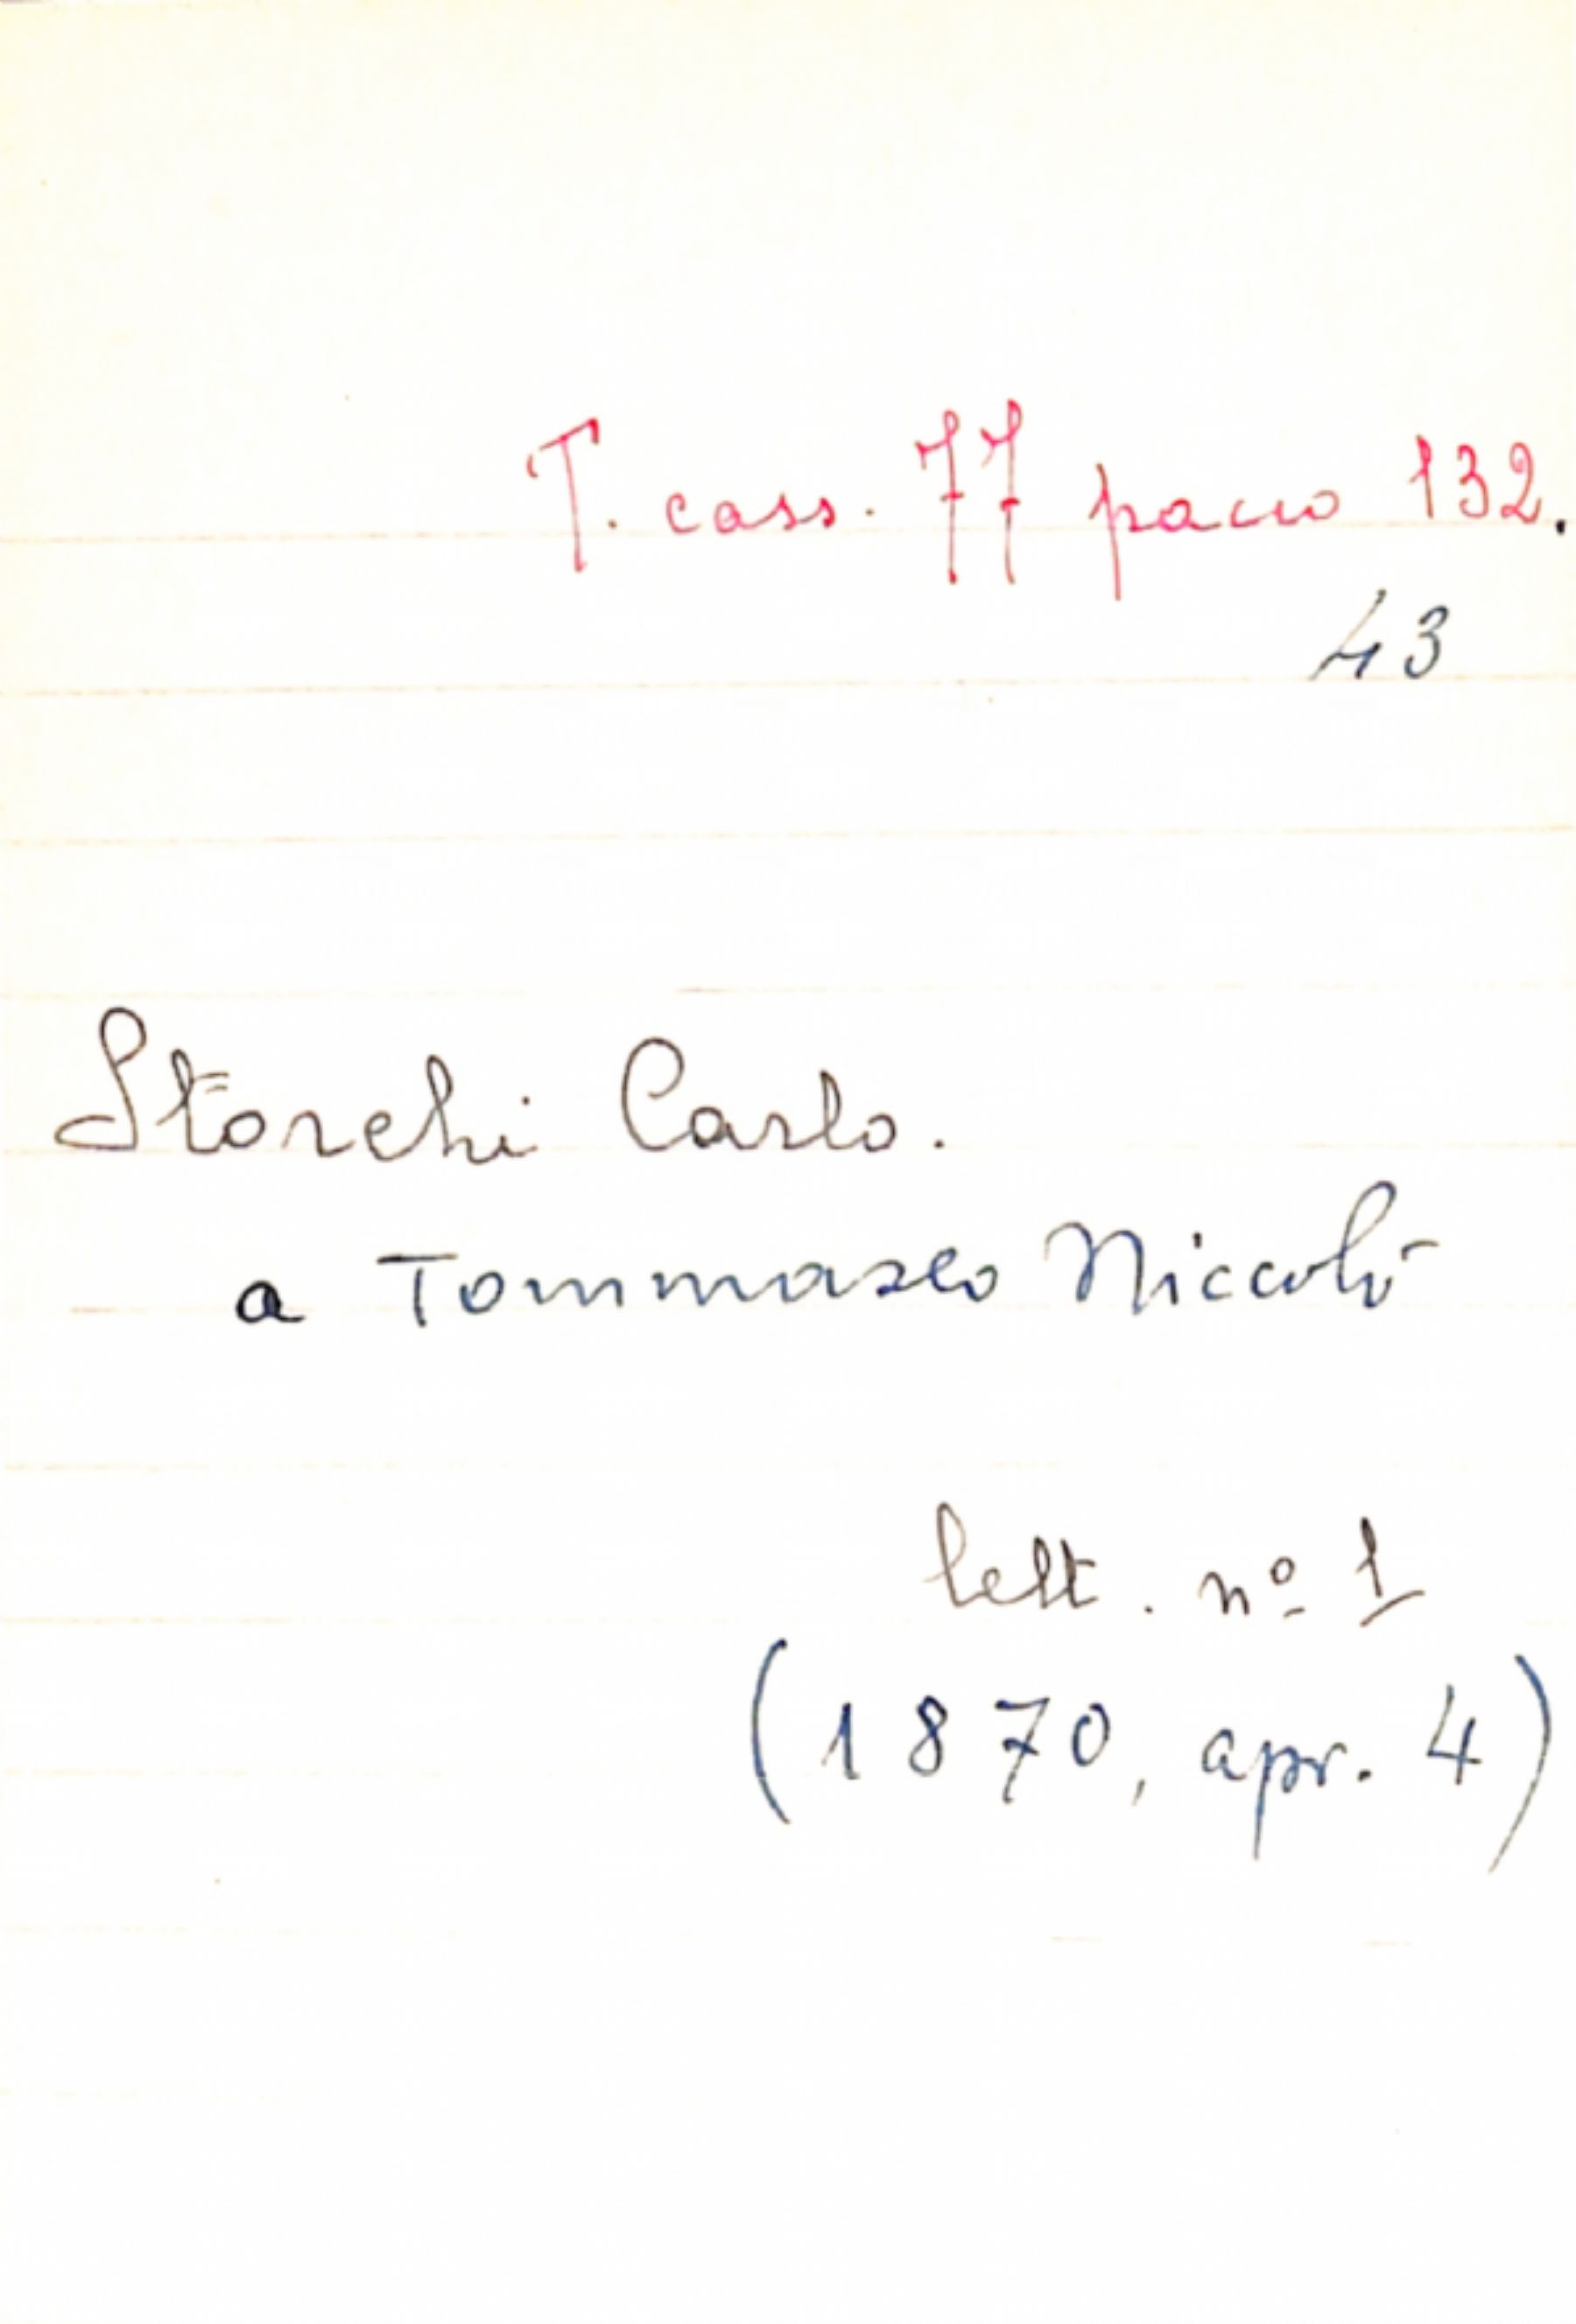 T. cass. 77 pacco 132.
43
Storchi Carlo.
a Tommaseo Niccolò
lett. nº 1
(1870, apr. 4)